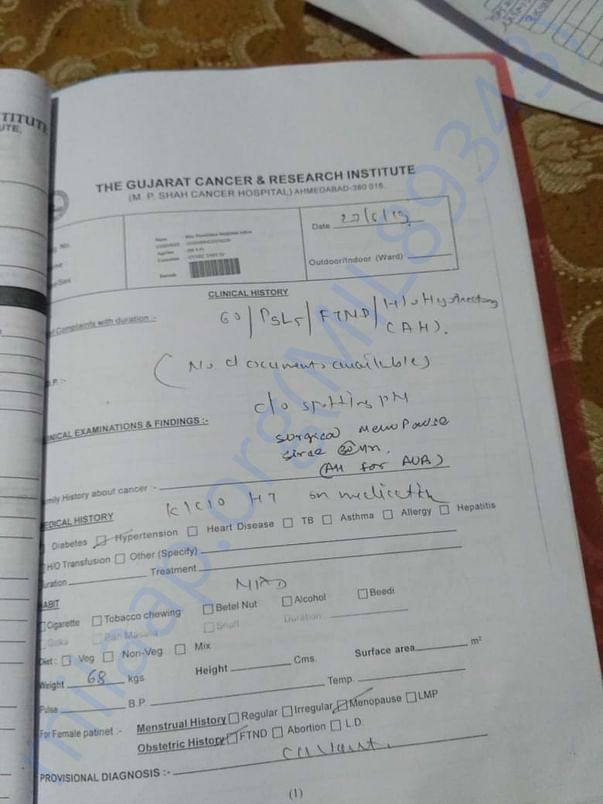 TITUTE
UTE,
THE GUJARAT CANCER & RESEARCH INSTITUTE
(M. P. SHAH CANCER HOSPITAL) AHMEDABAD-380 016.
No.
Date
Outdoor/Indoor (Ward)
CLINICAL HISTORY
Complaints with duration :-
60 / P5L5 / FTND / H/o Hysterectomy
(AH).
(No documents available)
c/o spotting PM
CLINICAL EXAMINATIONS & FINDINGS :-
surgical Menopause
since
(AH for AUB)
Family History about cancer :-
K/C/O HT on medication
MEDICAL HISTORY
Diabetes Hypertension Heart Disease TB Asthma Allergy Hepatitis
H/O Transfusion Other (Specify)
Duration Treatment
NIAD
HABIT
Cigarette Tobacco chewing Betel Nut Alcohol Beedi
Pan Masala Snuff Duration
Diet : Veg Non-Veg Mix
Weight 68 kgs Height Cms. Surface area m²
Pulse B.P. Temp.
For Female patinet :- Menstrual History Regular Irregular Menopause LMP
Obstetric History FTND Abortion L.D.
PROVISIONAL DIAGNOSIS :-
(1)
milaap.org(MIL893431